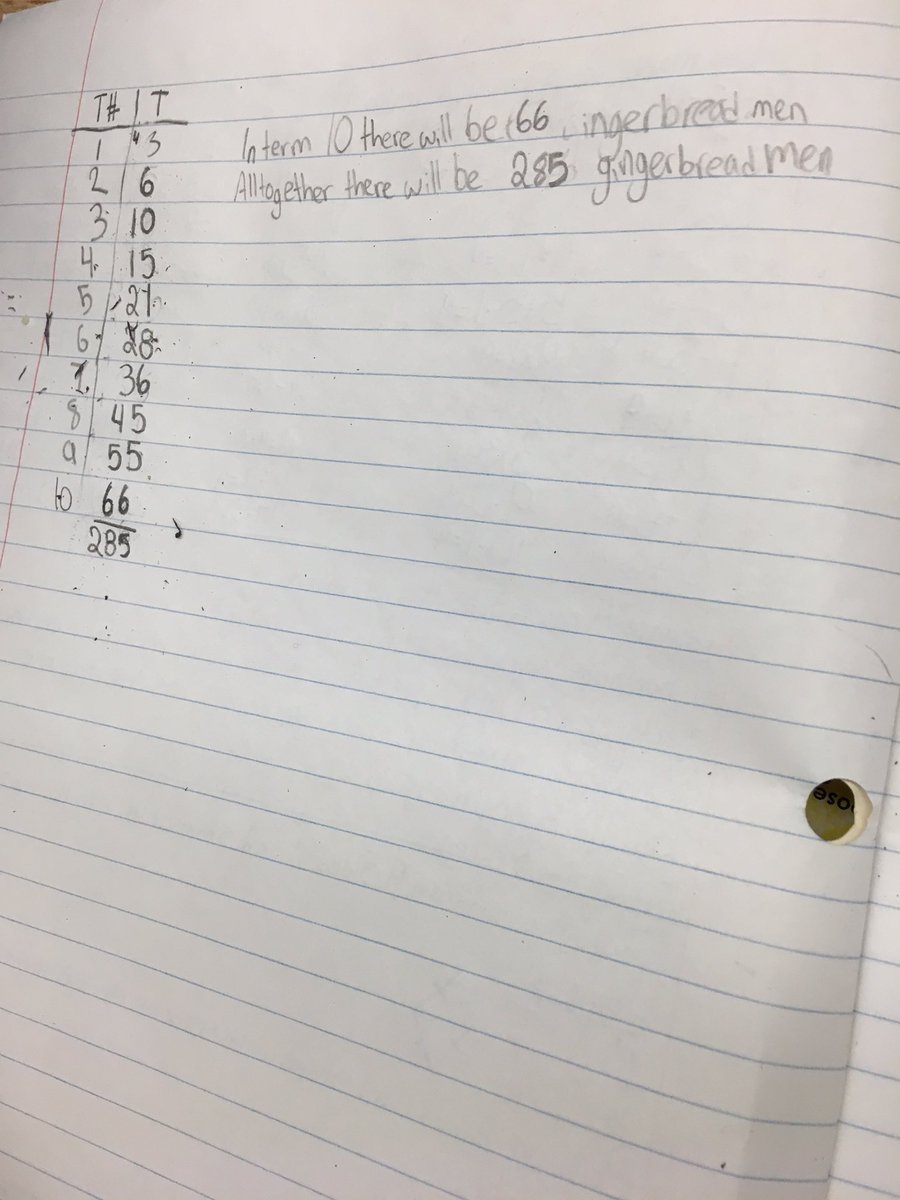 T# T
1 3
2 6
3 10
4 15
5 21
6 28
7 36
8 45
9 55
10 66
285
In term 10 there will be 66 ingerbread men
Alltogether there will be 285 gingerbread men